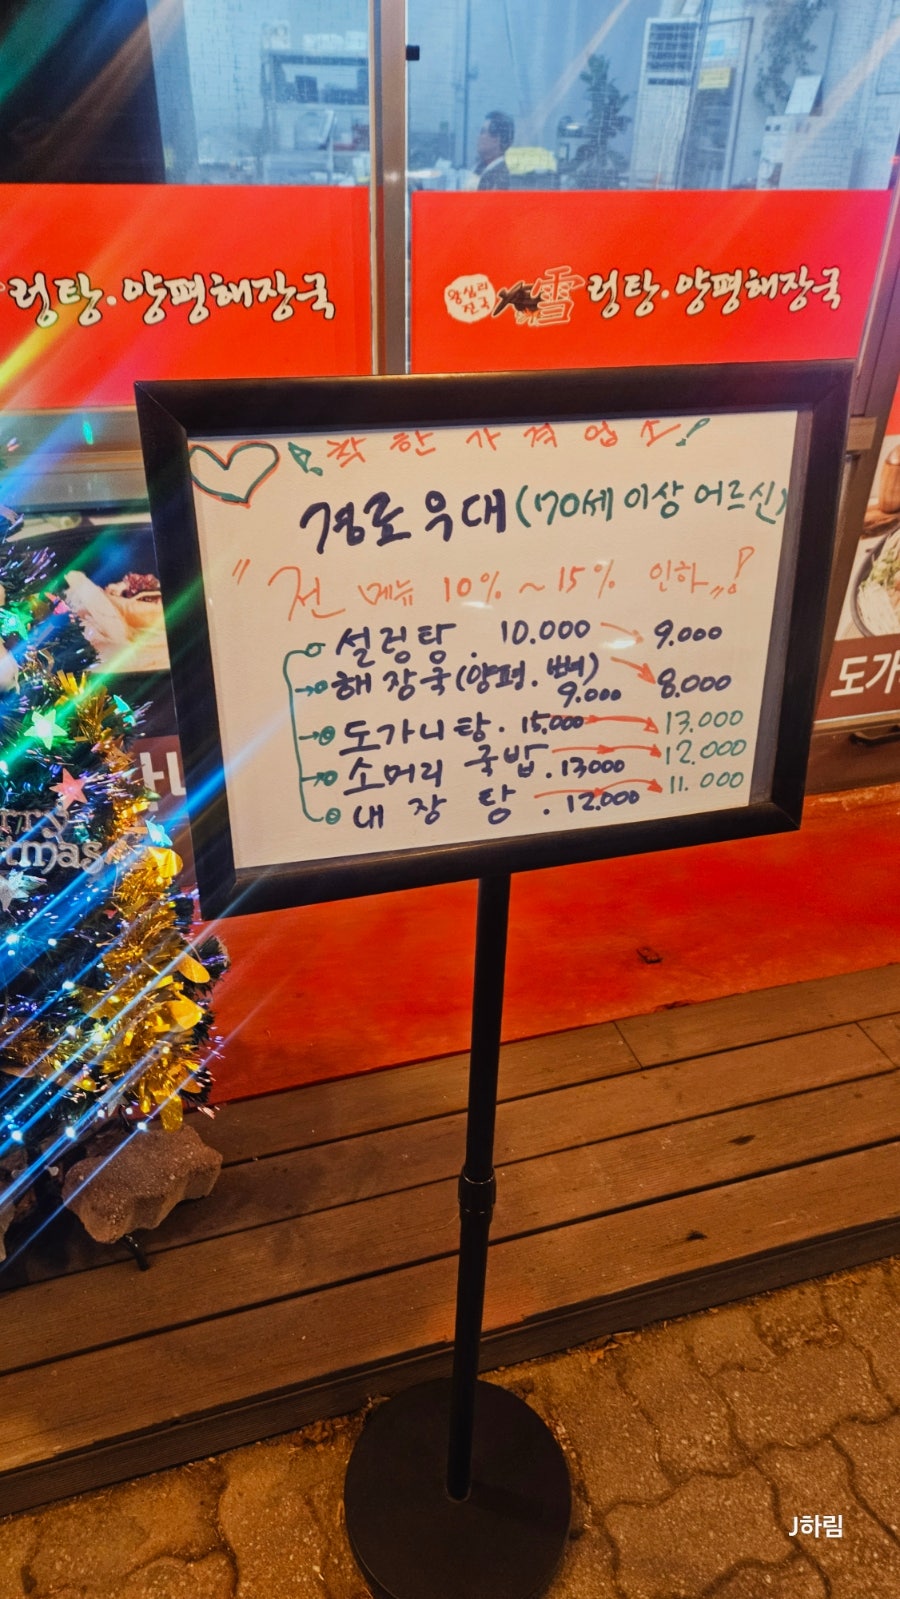 렁탕·양평해장국
왕십리
진국
雪렁탕·양평해장국
착한가격업소!
경로우대(70세 이상 어르신)
"전 메뉴 10%~15% 인하"!
설렁탕. 10.000 → 9.000
해장국(양평.뼈) 9.000 → 8.000
도가니탕. 15,000 → 13.000
소머리 국밥. 13000 → 12.000
내장탕. 12.000 → 11.000
도가
rry
stmas
J하림